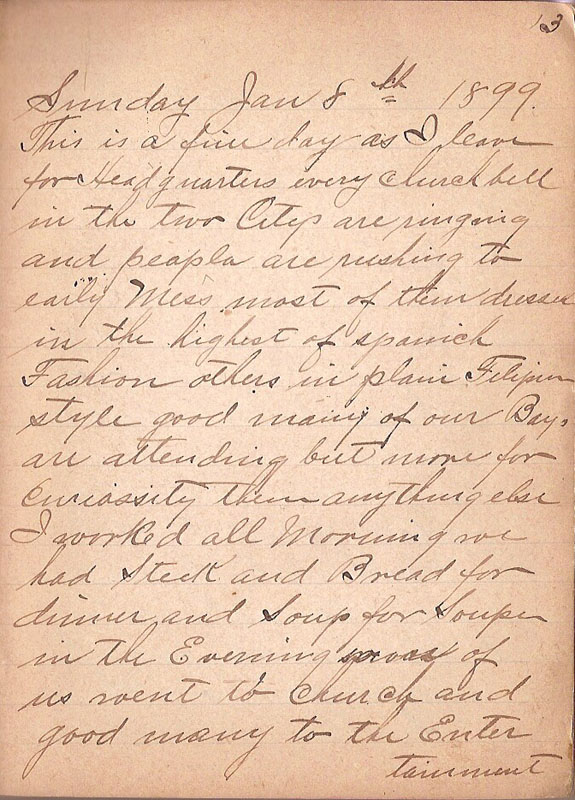 13
Sunday Jan 8th 1899.
This is a fine day as I leave
for Headquarters every church bell
in the two Citys are ringing
and peopla are rushing to
early Mess most of them dresses
in the highest of spanich
Fashion others in plain Filipin
style good many of our Boys
are attending but more for
Curiassity then anything else
I worked all Morning we
had Steek and Bread for
dinner and Soup for Souper
in the Evening of
us went to Church and
good many to the Enter
tainment